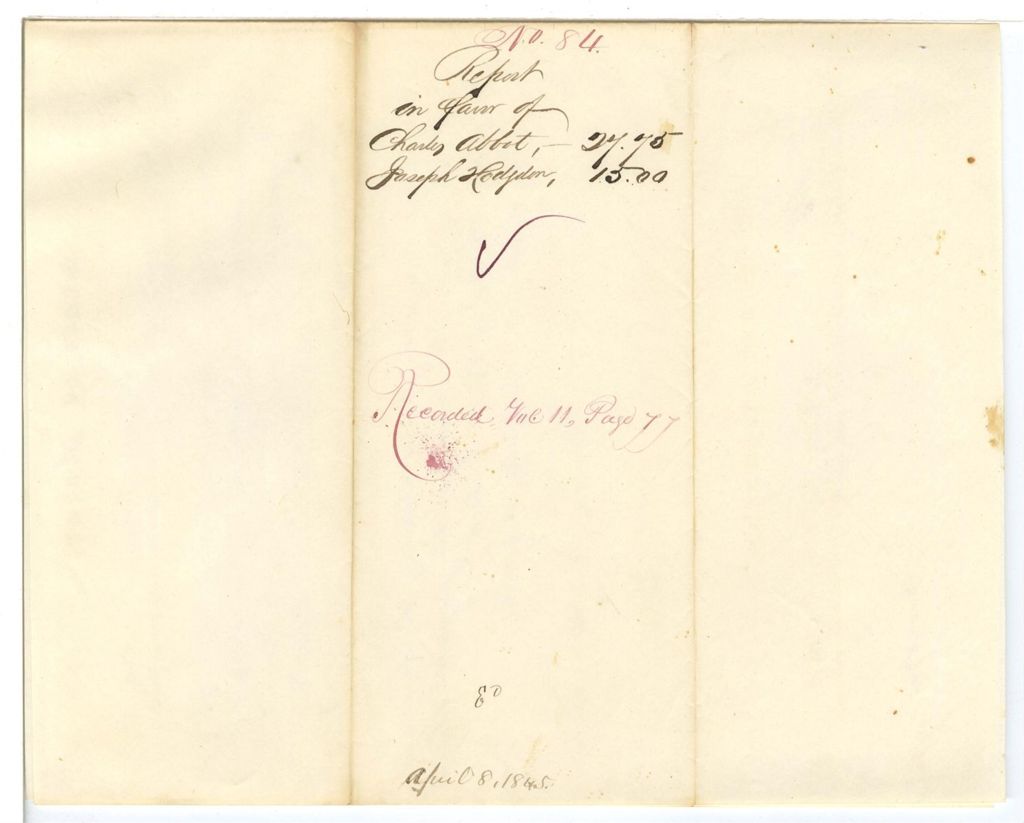 No. 84.
Report
in favor of
Charles Abbot, — 27.75
Joseph Hodgdon, 15.00
Recorded, Vol 11, Page 77
E^D
April 8, 1845.